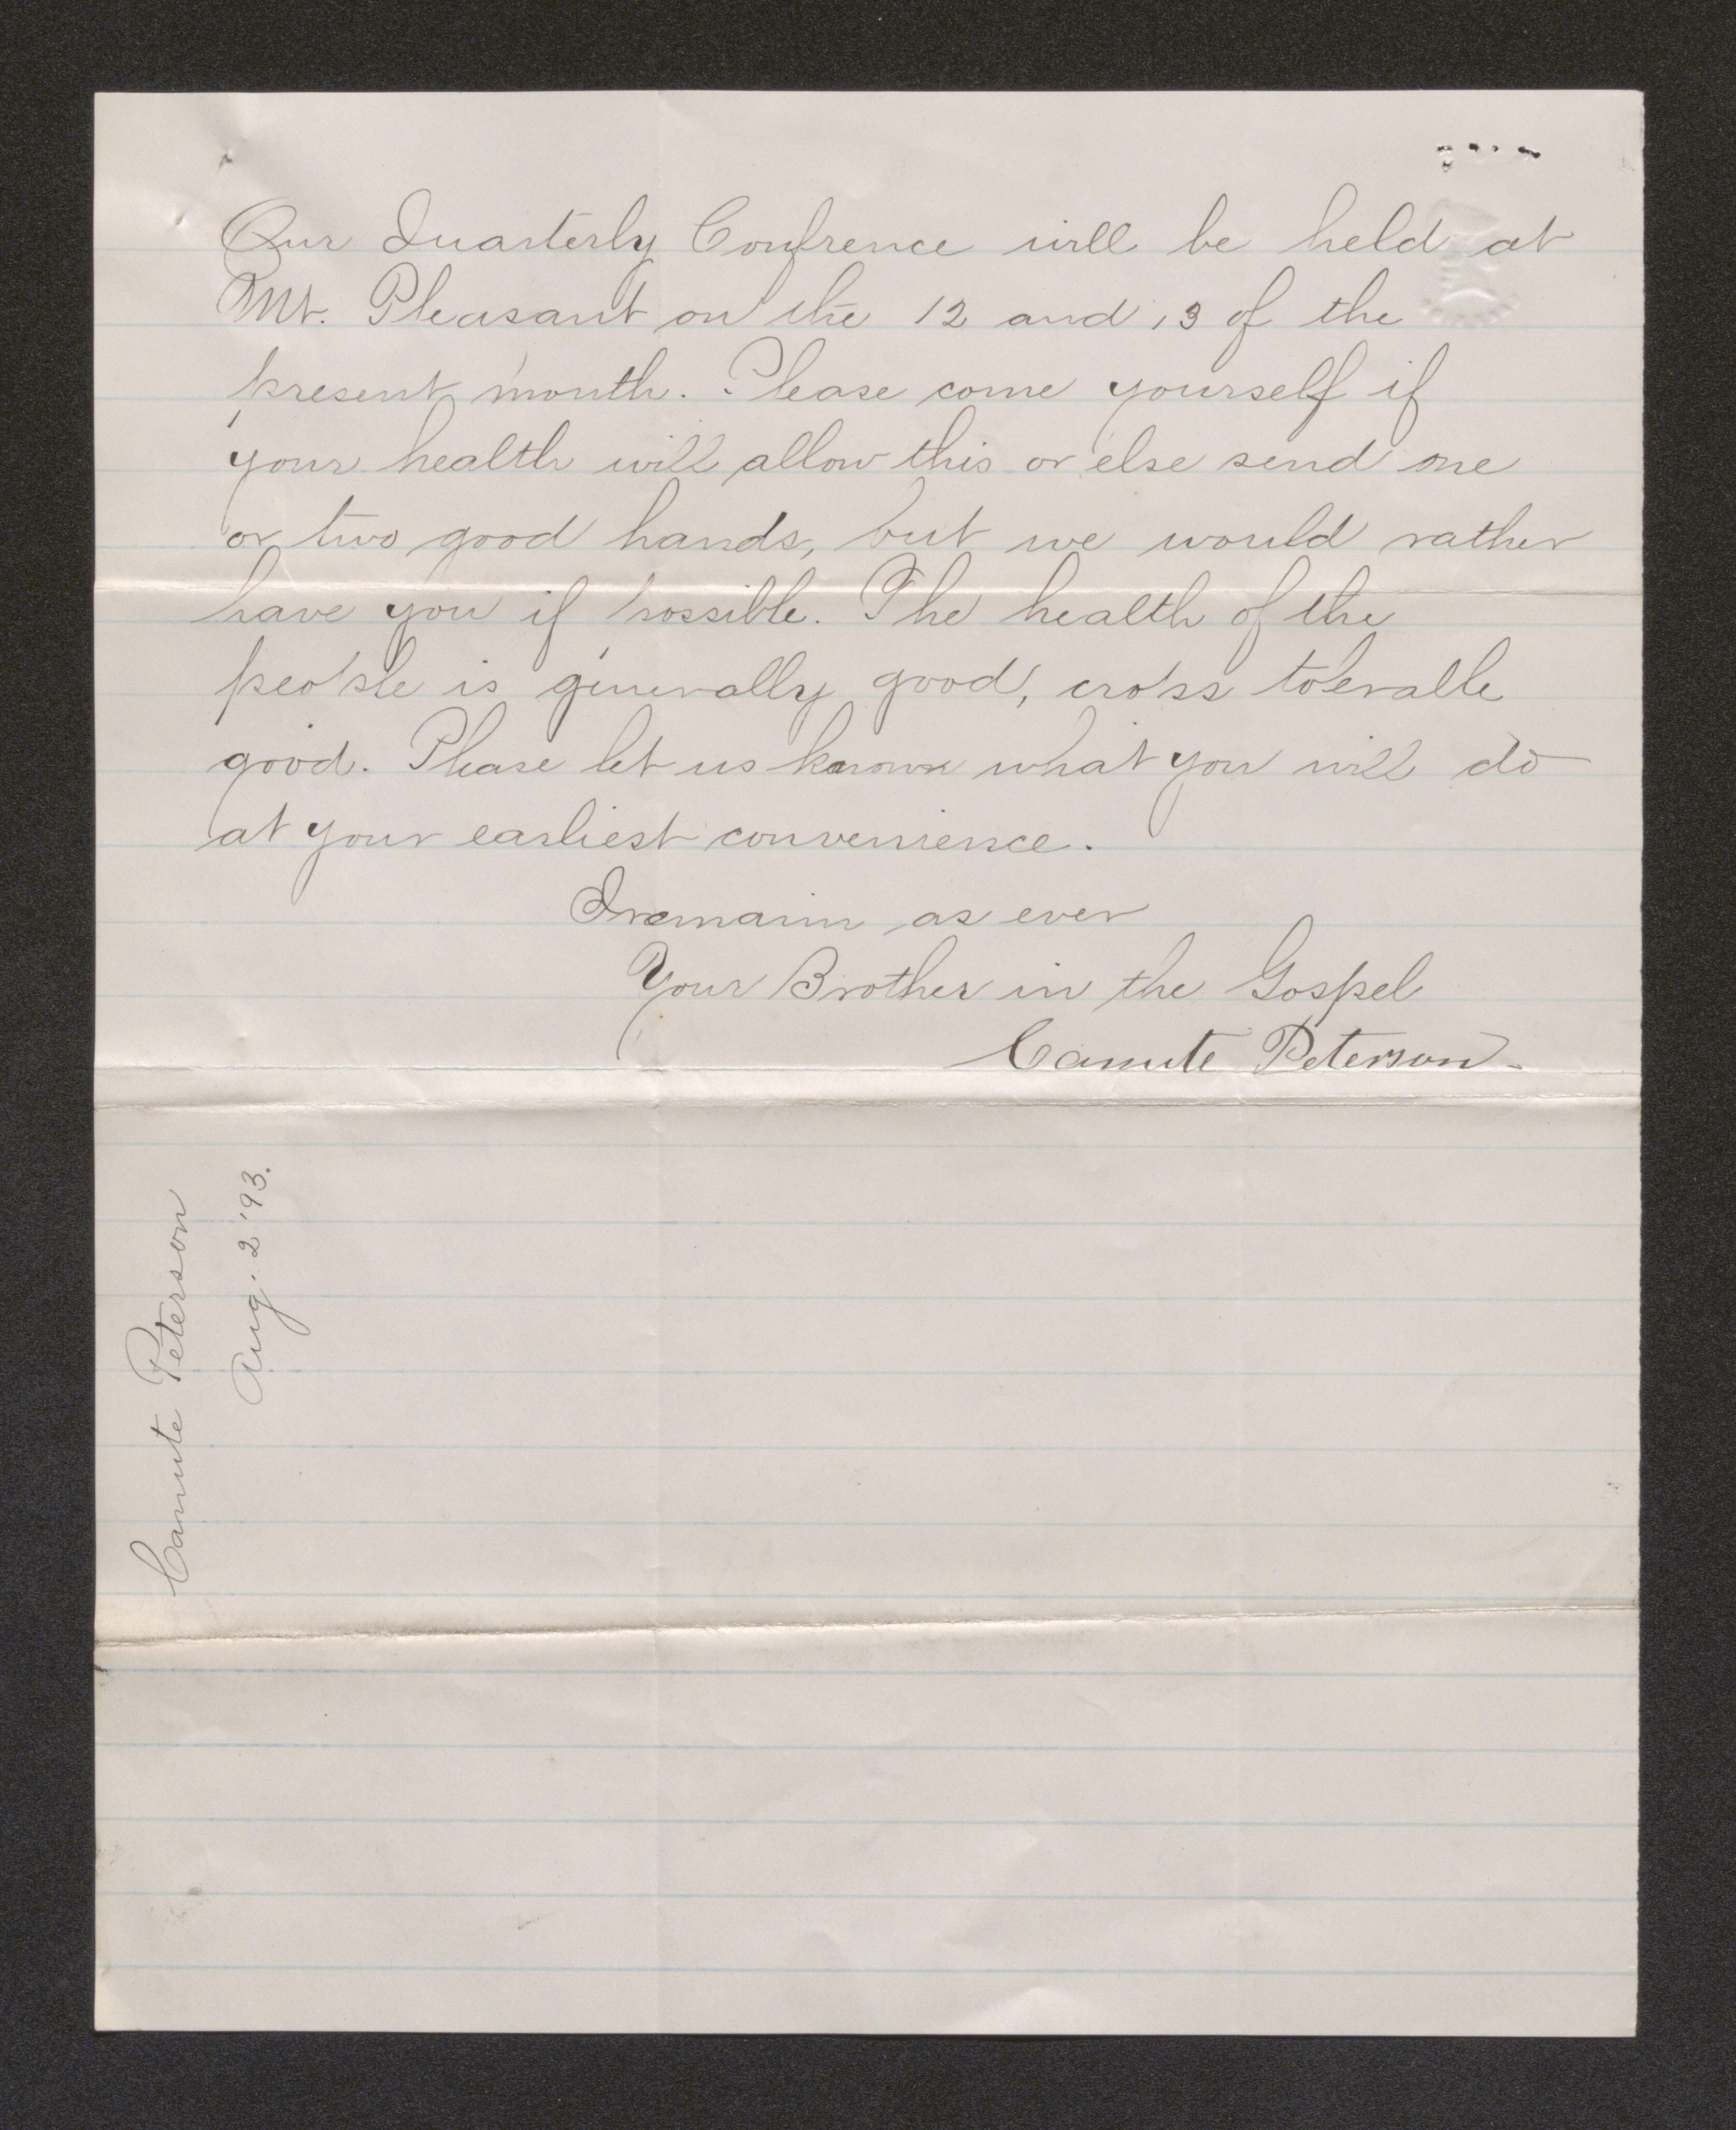 Our Quarterly Confrence will be held at
Mt. Pleasant on the 12 and 13 of the
present month. Please come yourself if
your health will allow this or else send one
or two good hands, but we would rather
have you if possible. The health of the
people is generally good, crops tolerable
good. Please let us know what you will do
at your earliest convenience.
I remain as ever
Your Brother in the Gospel
Canute Peterson.
Canute Peterson
Aug. 2 '93.